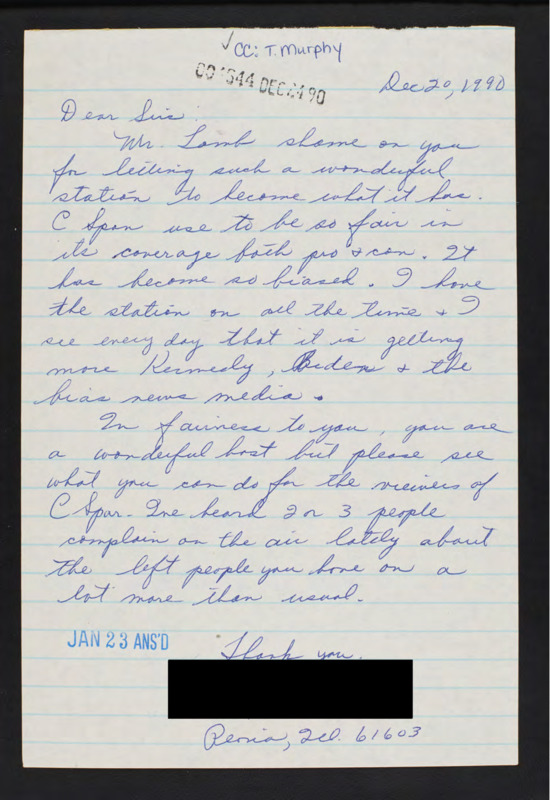 ✓ CC: T. Murphy
001544 DEC 24 90
Dec 20, 1990
Dear Sirs:
Mr. Lamb shame on you
for letting such a wonderful
station to become what it has.
C Span use to be so fair in
its coverage both pro & con. It
has become so biased. I have
the station on all the time & I
see every day that it is getting
more Kennedy, Biden & the
bias news media.
In fairness to you, you are
a wonderful host but please see
what you can do for the viewers of
C Span. I've heard 2 or 3 people
complain on the air lately about
the left people you have on a
lot more than usual.
JAN 23 ANS'D
Thank you.
Peoria, Ill. 61603